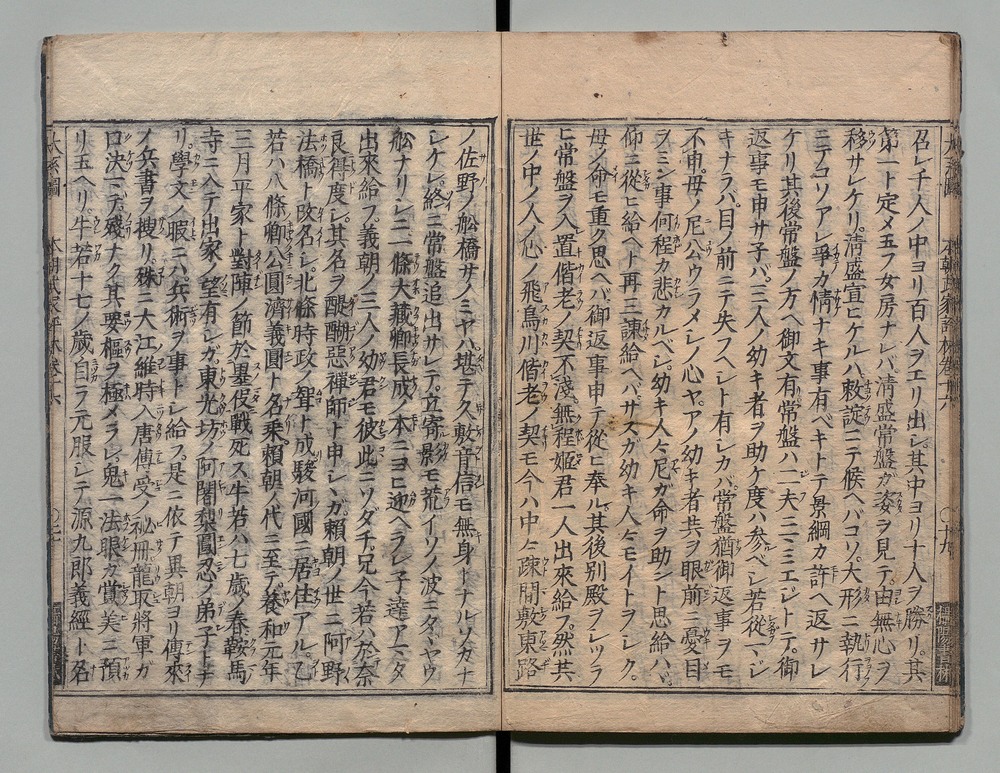 召レ千人ノ中ヨリ百人ヲエリ出レ其中ヨリ十人ヲ勝リ其
第一ト定メ玉フ女房ナレバ清盛常盤ガ姿ヲ見テ由無心ヲ
移サレケリ清盛宣ヒケルハ敕諚ニテ候ヘバコソ大形ニ執行
ニテコソアレ爭カ情ナキ事有ベキトテ景綱カ許ヘ返サレ
ケリ其後常盤ノ方ヘ御文有常盤ハ一夫ニ三ミエジトテ御
返事モ申サ子バ三人ノ幼キ者ヲ助ケ度ハ參ベレ若從ハジ
キナラバ目ノ前ニテ失フヘレト有レカバ常盤猶御返事ヲモ
不申母ノ尼公ウラメレノ心ヤアノ幼キ者共ヲ眼前ニ憂目
ヲミン事何程カ悲カルベレ幼キ人々尼ガ命ヲ助ント思給ハヾ
仰ニ從ヒ給ヘト再三諫給ヘバサスガ幼キ人々モイトヲレク
母ノ命モ重ク思ヘバ御返事申テ從ヒ奉ル其後別殿ヲレツラ
ヒ常盤ヲ入置偕老ノ契不淺無程姬君一人出來給フ然共
世ノ中ノ人ノ心ノ飛鳥川偕老ノ契モ今ハ中々疎間敷東路
本朝武家評林卷十六
〇十九
ノ佐野ノ舩橋サノミヤハ堪テ久敷音信モ無身トナルソカナ
レケレ終ニ常盤追出サレテ立寄影モ荒イソノ波ニタヾヤウ
舩ナリレニ一條大藏卿長成ノ本ニヨヒ迎ヘラレ子達アマタ
出來給フ義朝ノ三人ノ幼君モ彼此ニソダチ兄今若ハ於奈
良得度レ其名ヲ醍醐惡禪師ト申レヽガ賴朝ノ世ニ阿野
法橋ト改名レ北條時政ノ聟ト成駿河國ニ居住アル乙
若ハ八條卿公圓濟義圓ト名乘賴朝ノ代ニ至テ養和元年
三月平家ト對陣ノ節於墨俣戰死ス牛若ハ七歲ノ春鞍馬
寺ニ入テ出家ノ望有レガ東光坊ノ阿闍梨圓忍ノ弟子トナ
リ學文ノ暇ニハ兵術ヲ事トレ給フ是ニ依テ異朝ヨリ傳來
ノ兵書ヲ搜リ殊ニ大江維時入唐傳受ノ祕冊龍取將軍ガ
口決マデ殘ナク其要樞ヲ極メラレ鬼一法眼ガ賞美ニ預
リ五ヘリ牛若十七ノ歲自ラ元服レテ源九郎義經ト名
本朝武家評林卷十六
〇二十